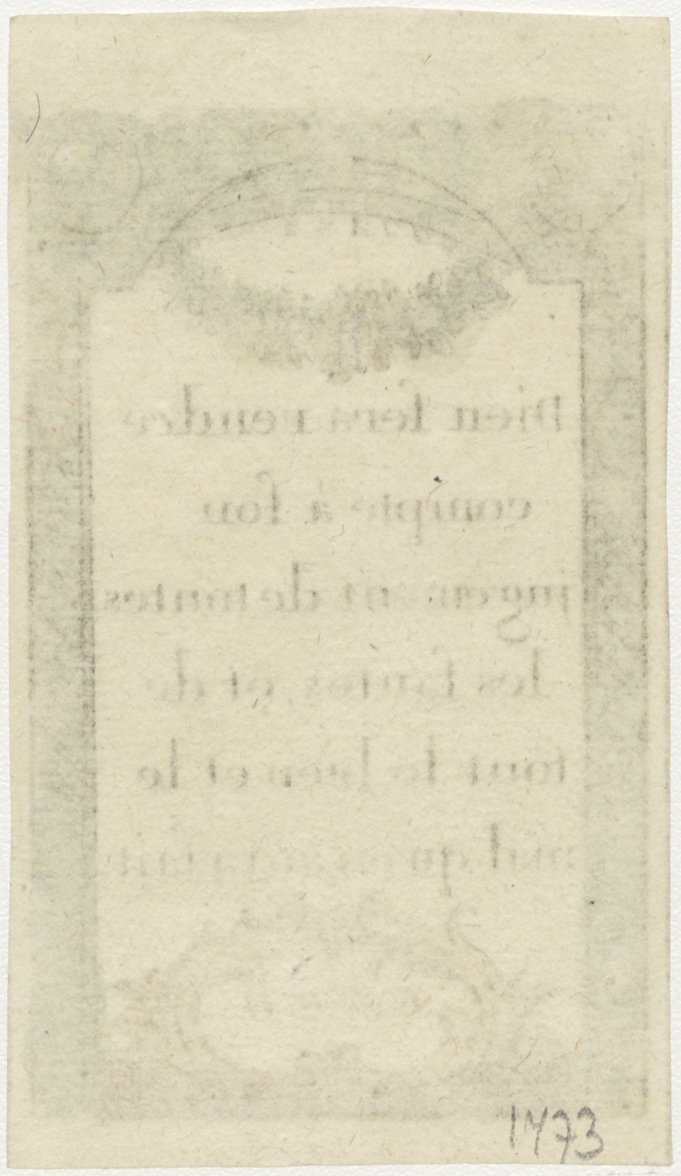 Dieu fera rendre
compte à ſon
jugement de toutes
les fautes, et de
tout le bien et le
mal qu'on aura fait
1473